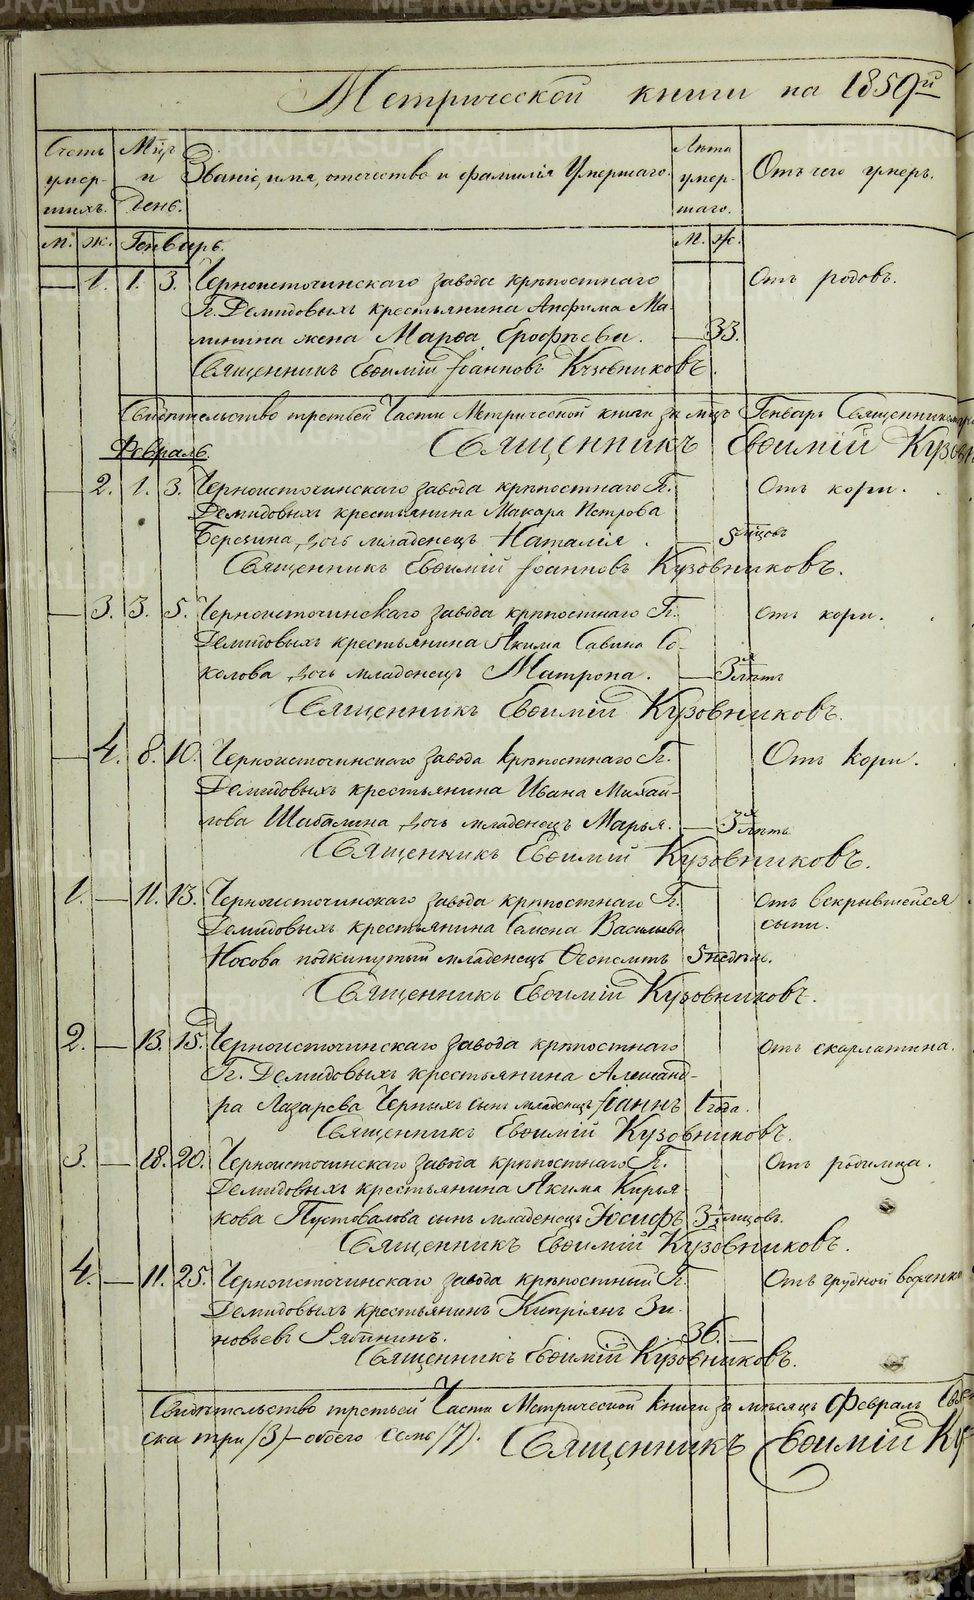 Метрической книги на 1859й
Счетъ умер- шихъ.
Мцъ и День.
Званіе, имя, отечество и фамилія Умершаго.
Лѣта умер- шаго.
Отъ чего умеръ.
М. Ж. Генварь. М. Ж.
1. 1. 3. Черноисточинскаго завода крѣпостнаго Отъ родовъ.
Г. Демидовыхъ крестьянина Анфима Ма-
линина жена Марѳа Ерофѣева. 33.
Священникъ Евѳимій Іоанновъ Кузовниковъ.
Свидѣтельство третьей Части Метрической книги за мцъ Генварь Священник
Священникъ Евѳимій Кузовн
Февраль.
2. 1. 3. Черноисточинскаго завода крѣпостнаго Г. Отъ кори.
Демидовыхъ крестьянина Макара Петрова
Березина, дочь младенецъ Наталія. 5 мцовъ
Священникъ Евѳимій Іоанновъ Кузовниковъ.
3. 3. 5. Черноисточинскаго завода крѣпостнаго Г. отъ кори.
Демидовыхъ крестьянина Якима Савина Со-
колова дочь младенецъ Матрона. 3х лѣтъ
Священникъ Евѳимій Кузовниковъ.
4. 8. 10. Черноисточинскаго завода крѣпостнаго Г. Отъ кори.
Демидовыхъ крестьянина Ивана Михай-
лова Шабалина дочь младенецъ Марья. 3х лѣтъ
Священникъ Евѳимій Кузовниковъ.
1. 11. 13. Черноисточинскаго завода крѣпостнаго Г. отъ вскрывшейся
Демидовыхъ крестьянина Семена Васильева сыпи.
Носова подкинутый младенецъ Ѳеопемптъ 5 недѣль.
Священникъ Евѳимій Кузовниковъ.
2. 13. 15. Черноисточинскаго завода крѣпостнаго отъ скарлатина.
Г. Демидовыхъ крестьянина Александ-
ра Лазарева Черныхъ сынъ младенецъ Іоаннъ 1 года.
Священникъ Евѳимій Кузовниковъ.
3. 18. 20. Черноисточинскаго завода крѣпостнаго Г. Отъ родимца.
Демидовыхъ крестьянина Якима Кирья-
кова Пустовалова сынъ младенецъ Іосифъ 3 мцовъ.
Священникъ Евѳимій Кузовниковъ.
4. 11. 25. Черноисточинскаго завода крѣпостный Г. Отъ грудной
Демидовыхъ крестьянинъ Кипріянъ Зи-
новьевъ Рябининъ. 36.
Священникъ Евѳимій Кузовниковъ.
Свидѣтельство третьей Части Метрической книги за мѣсяцъ Февраль
ска три /3/ обоего семь /7/. Священникъ Евѳимій Ку
METRIKI.GASU-URAL.RU